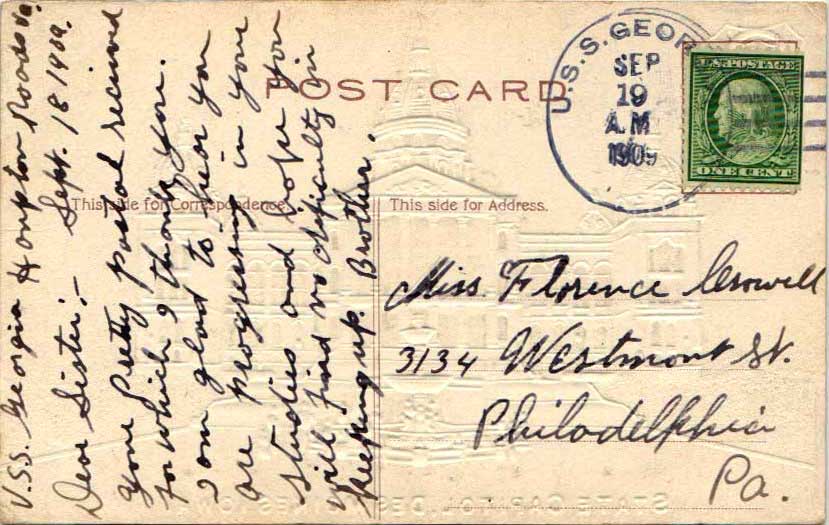 POST CARD
This side for Correspondence.
This side for Address.
U.S.S. Georgia Hampton Roads Va.
Sept. 18 1909.
Dear Sister:-
Your Pretty postal received
for which I thank you.
I am glad to hear you
are progressing in your
studies and hope you
will find no dificulty in
keeping up. Brother.
U.S.S. GEOR
SEP
19
A.M
1909
U.S. POSTAGE
ONE CENT
Miss. Florence Crowell
3134 Westmont St.
Philadelphia
Pa.